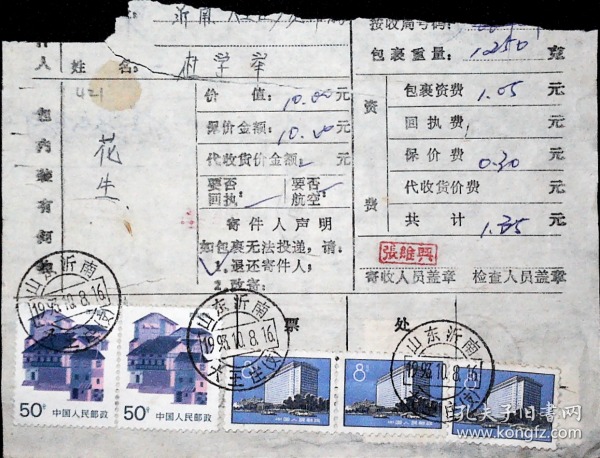 沂南
接收局号码:
包裹重量: 1250 克
件人 姓名: 杜学举
421
包内装有何
花生
价值: 10.00元
保价金额: 10.00元
代收货价金额: 元
要否回执 要否航空
寄件人声明
如包裹无法投递,请:
1.退还寄件人;
2.改寄:
资费
包裹资费 1.05 元
回执费 元
保价费 0.30 元
代收货价费 元
共计 1.35 元
張雎興
寄收人员盖章 检查人员盖章
票 处
山东沂南
1993.10.8.16
山东沂南
1993.10.8.16
大王庄
山东沂南
1993.10.8.16
50分 中国人民邮政
50分 中国人民邮政
8分
中国人民邮政
8分
中国人民邮政
8分
孔夫子旧书网
www.kongfz.com